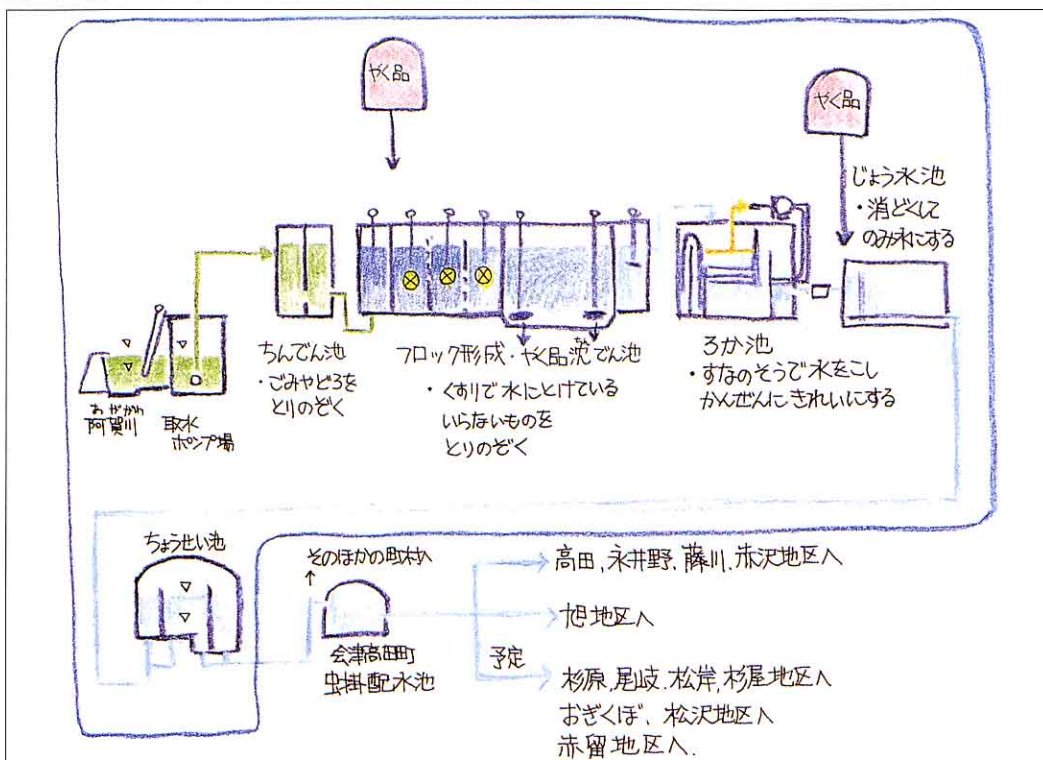 やく品
やく品
じょう水池
・消どくして
のみ水にする
ちんでん池
・ごみやどろを
とりのぞく
フロック形成・やく品沈でん池
ちん
・くすりで水にとけている
いらないものを
とりのぞく
ろか池
・すなのそうで水をこし
かんぜんにきれいにする
あがかわ
阿賀川
取水
ポンプ場
ちょうせい池
そのほかの町村へ
会津高田町
虫掛配水池
高田、永井野、藤川、赤沢地区へ
旭地区へ
予定
杉原、尾岐、松岸、杉屋地区へ
おぎくぼ、松沢地区へ
赤留地区へ.